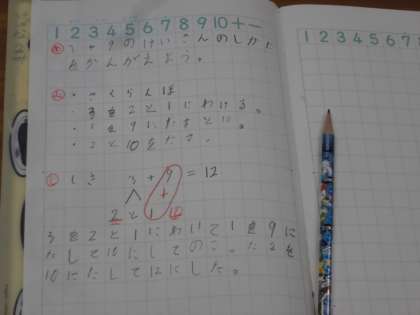 1 2 3 4 5 6 7 8 9 10 + −
1 2 3 4 5 6 7 8
3+9のけいさんのしかた
をかんがえよう。
さくらんぼ
・3を2と1にわける。
・1を9にたすと10。
・2と10をたす。
しき 3+9=12
2と1 10
3を2と1にわけて1を9に
たして10にしてのこった2を
10にたして12にした。